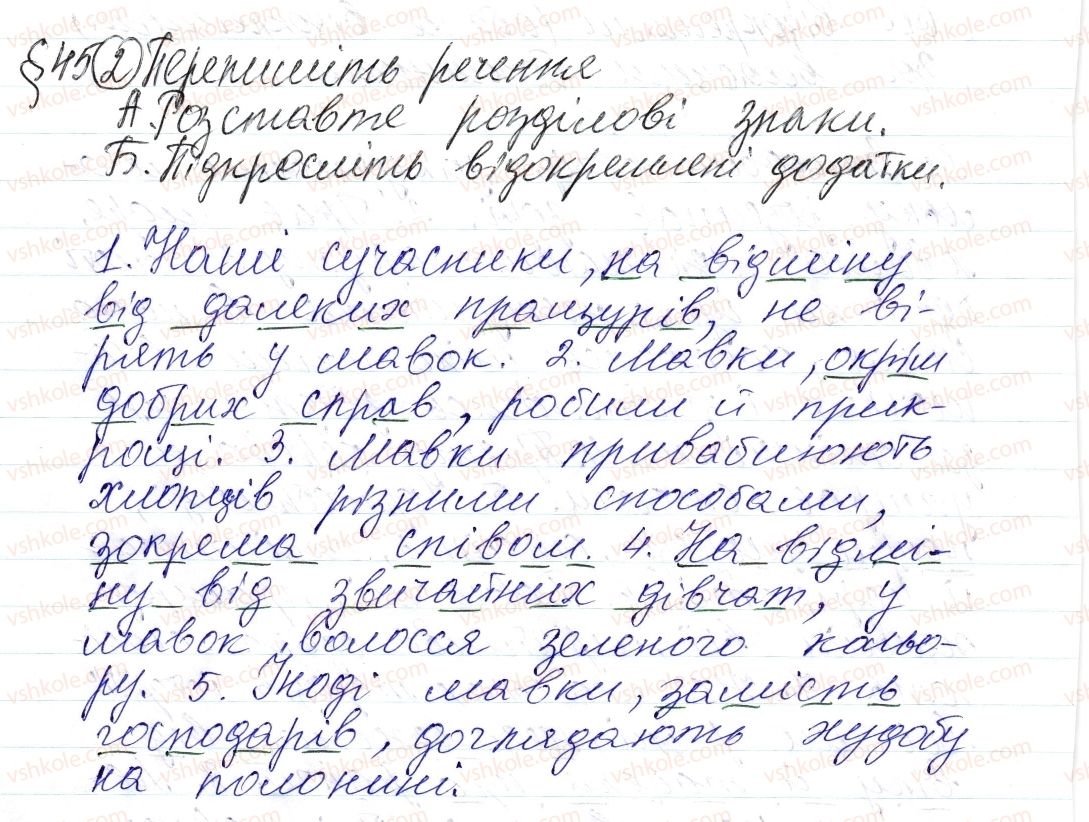 §45 (2) Перепишіть речення
А. Розставте розділові знаки.
Б. Підкресліть відокремлені додатки.
1. Наші сучасники, на відміну
від далеких пращурів, не ві-
рять у мавок. 2. Мавки, окрім
добрих справ, робили й прик-
рощі. 3. Мавки приваблюють
хлопців різними способами,
зокрема співом. 4. На відмі-
ну від звичайних дівчат, у
мавок волосся зеленого кольо-
ру. 5. Іноді мавки, замість
господарів, доглядають худобу
на полонині.